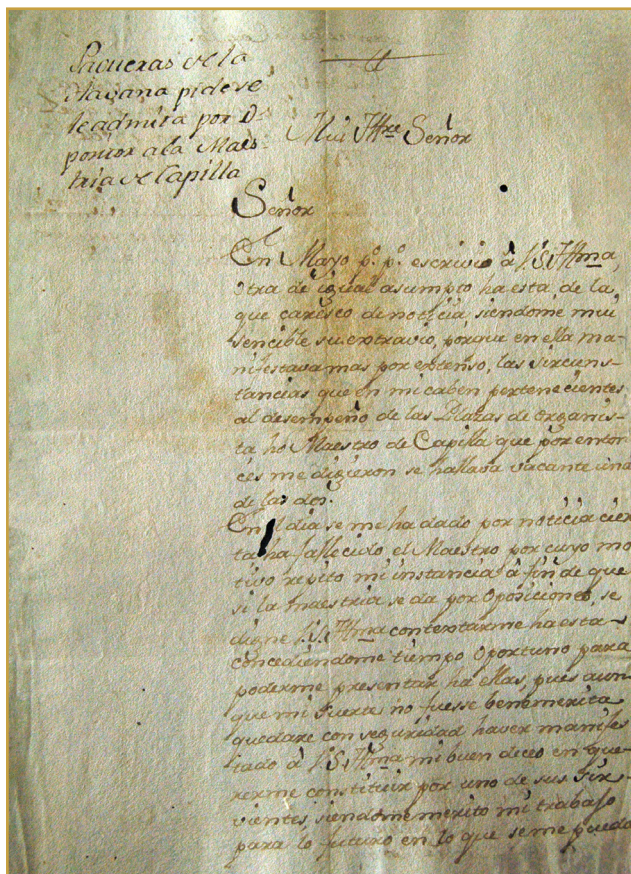 Pacueras de la
Havana pide se
le admita por O-
positor a la Maes-
tria de Capilla
Mui Yltre Señor
Señor
En Mayo pº. pº. escrivio â V.S. Yllma,
otra de igual asumpto ha esta, de la
que caresco de noticia, siendome mui
sencible su extravio, porque en ella ma-
nifestava mas por extenso, las sircuns-
tancias que en mi caben pertenecientes
al desempeño de las Plazas de Organis-
ta ho Maestro de Capilla que por enton-
ces me digieron se hallava vacante una
de las dos.
En el dia se me ha dado por noticia cier-
ta ha fallecido el Maestro por cuyo mo-
tivo repito mi instancia â fin de que
si la Maestria se da por Oposiciones, se
digne V.S. Yllma contextarme ha esta
concediendome tiempo Oportuno para
poderme presentar ha ellas, pues aun-
que mi suerte no fuesse benemerita
quedare con seguridad haver manifes-
tado â V.S. Yllma mi buen deceo en que-
rerme constituir por uno de sus Sir-
vientes, siendome merito mi trabajo
para lo futuro en lo que se me pueda